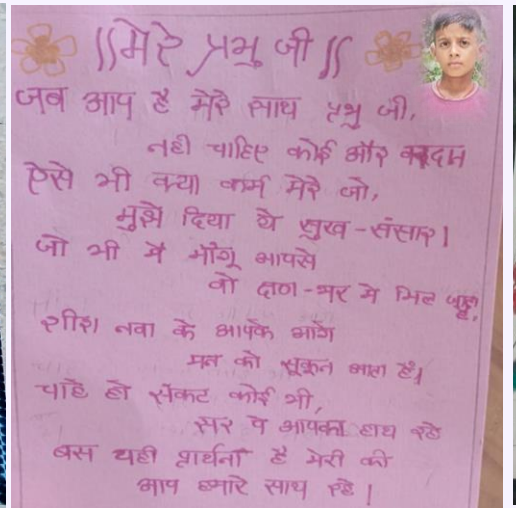 ||मेरे प्रभु जी||
जब आप है मेरे साथ प्रभु जी,
नही चाहिए कोई और
ऐसे भी क्या कर्म मेरे जो,
मुझे दिया ये सुख-संसार।
जो भी मै माँगू आपसे
वो क्षण-भर मे मिल जाता है,
शीश नवा के आपके आगे
मन को सुकून आता है।
चाहे हो संकट कोई भी,
सर पे आपका हाथ रहे
बस यही प्रार्थना है मेरी की
आप हमारे साथ रहे।